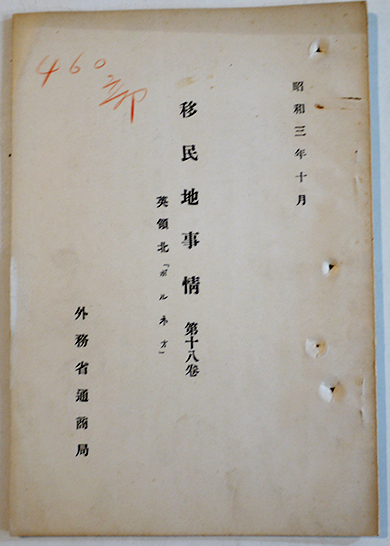 昭和三年十月
移民地事情 第十八卷
英領北「ボルネオ」
外務省通商局
460部